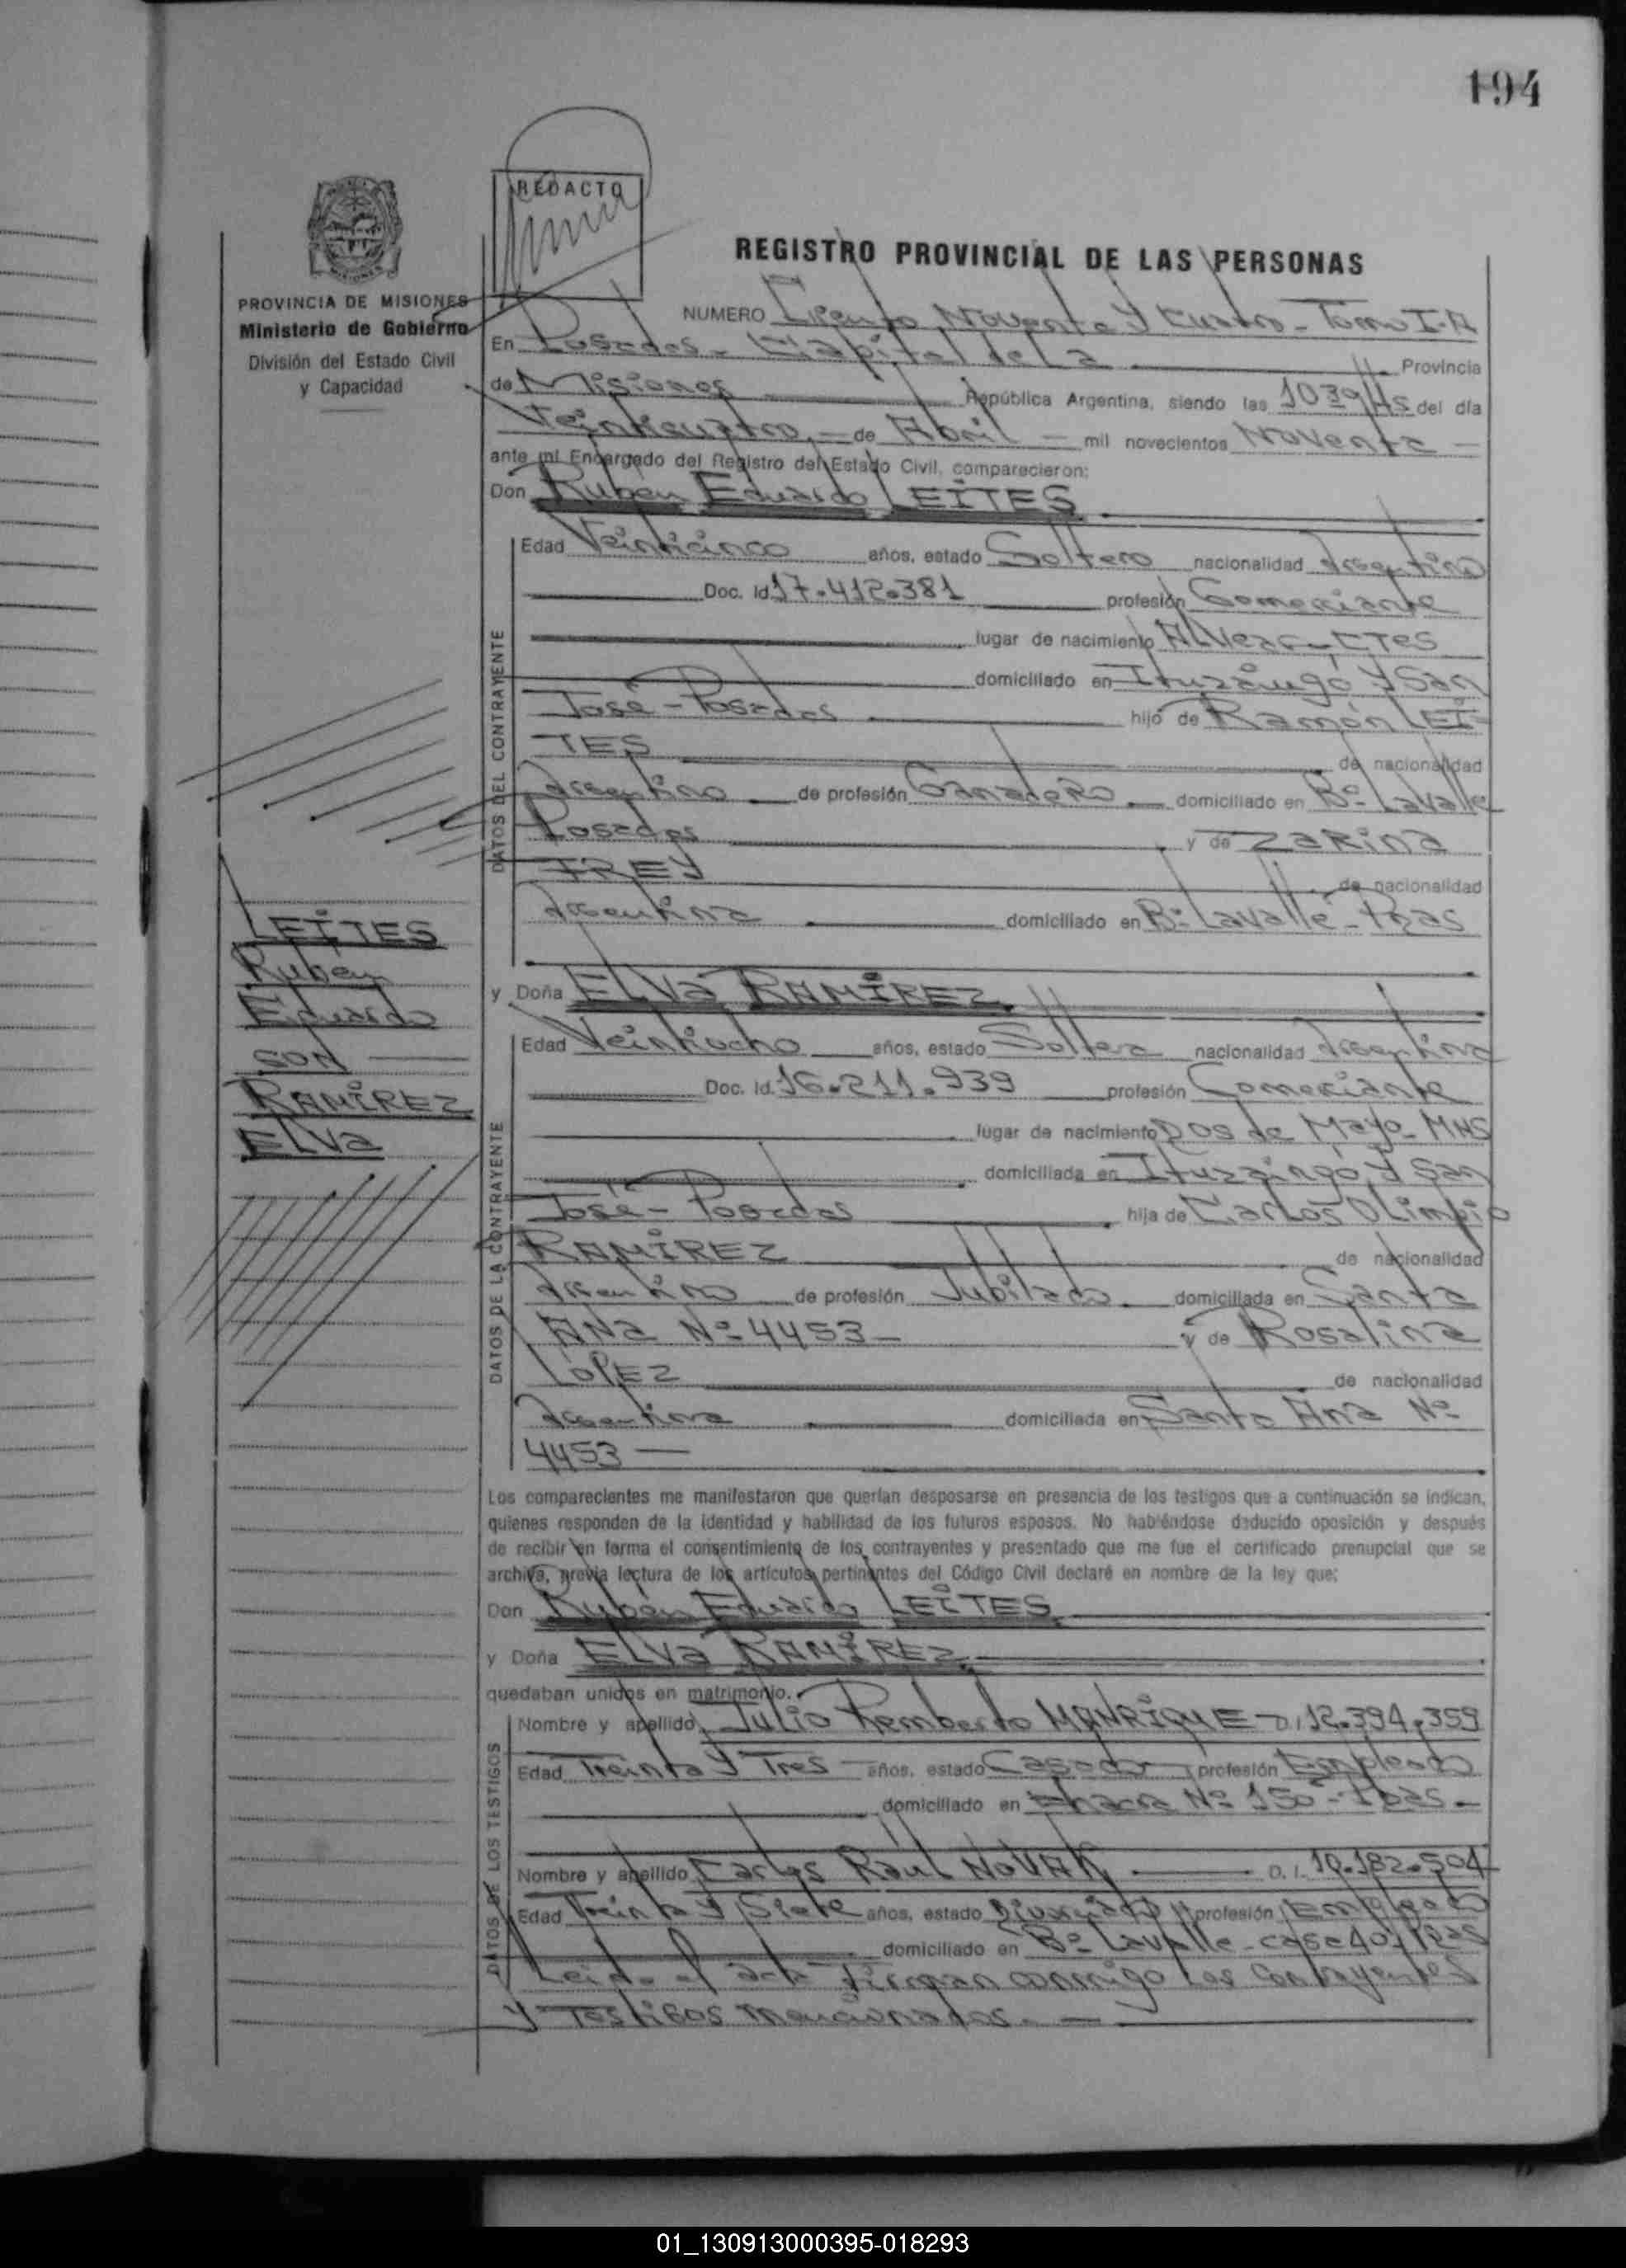 194
REDACTO
PROVINCIA DE MISIONES
Ministerio de Gobierno
División del Estado Civil
y Capacidad
REGISTRO PROVINCIAL DE LAS PERSONAS
NUMERO Ciento Noventa y Cuatro - Tomo I-A
En Posadas - Capital de La Provincia
de Misiones República Argentina, siendo las 10 30 Hs del día
Veinticuatro, - de Abril - mil novecientos Noventa -
ante mi Encargado del Registro del Estado Civil, comparecieron:
Don Ruben Eduardo LEITES
Edad Veinticinco años, estado Soltero nacionalidad Argentino
Doc. Id 17.412.381 profesión Comerciante
lugar de nacimiento ALVear - CTes
domiciliado en Ituzaingo y San
José - Posadas hijo de Ramón LEI-
TES de nacionalidad
Argentino de profesión Ganadero domiciliado en Bº Lavalle
Posadas y de Zarina
FREY de nacionalidad
Argentina domiciliado en Bº Lavalle - Pdas
LEITES
Ruben
Eduardo
CON
RAMIREZ
ELVa
y Doña ELVa RAMIREZ
Edad Veintiocho años, estado Soltera nacionalidad Argentina
Doc. Id. 16.211.939 profesión Comerciante
lugar de nacimiento Dos de Mayo - MNS
domiciliada en Ituzaingo y San
José - Posadas hija de Carlos OLimpio
RAMIREZ de nacionalidad
Argentino de profesión Jubilado domiciliada en Santa
ANa Nº 4453 - y de Rosalina
LOPEZ de nacionalidad
Argentina domiciliada en Santa Ana Nº
4453 -
DATOS DEL CONTRAYENTE
DATOS DE LA CONTRAYENTE
Los comparecientes me manifestaron que querían desposarse en presencia de los testigos que a continuación se indican,
quienes responden de la identidad y habilidad de los futuros esposos. No habiéndose deducido oposición y después
de recibir en forma el consentimiento de los contrayentes y presentado que me fue el certificado prenupcial que se
archiva, previa lectura de los artículos pertinentes del Código Civil declaré en nombre de la ley que;
Don Ruben Eduardo LEITES
y Doña ELVa RAMIREZ
quedaban unidos en matrimonio.
Nombre y apellido Julio Remberto MANRIQUE D.I 12.394.359
Edad Treinta y Tres años, estado Casado profesión Empleado
domiciliado en Chacra Nº 150 - Pdas -
Nombre y apellido Carlos Raul NOVAK D. I. 10.182.504
Edad Treinta y Siete años, estado Divorciado profesión Empleado
domiciliado en Bº Lavalle - casa 40, Pdas
DATOS DE LOS TESTIGOS
Leida el acta firman conmigo Los Contrayentes
y Testigos mencionados. -
01_130913000395-018293